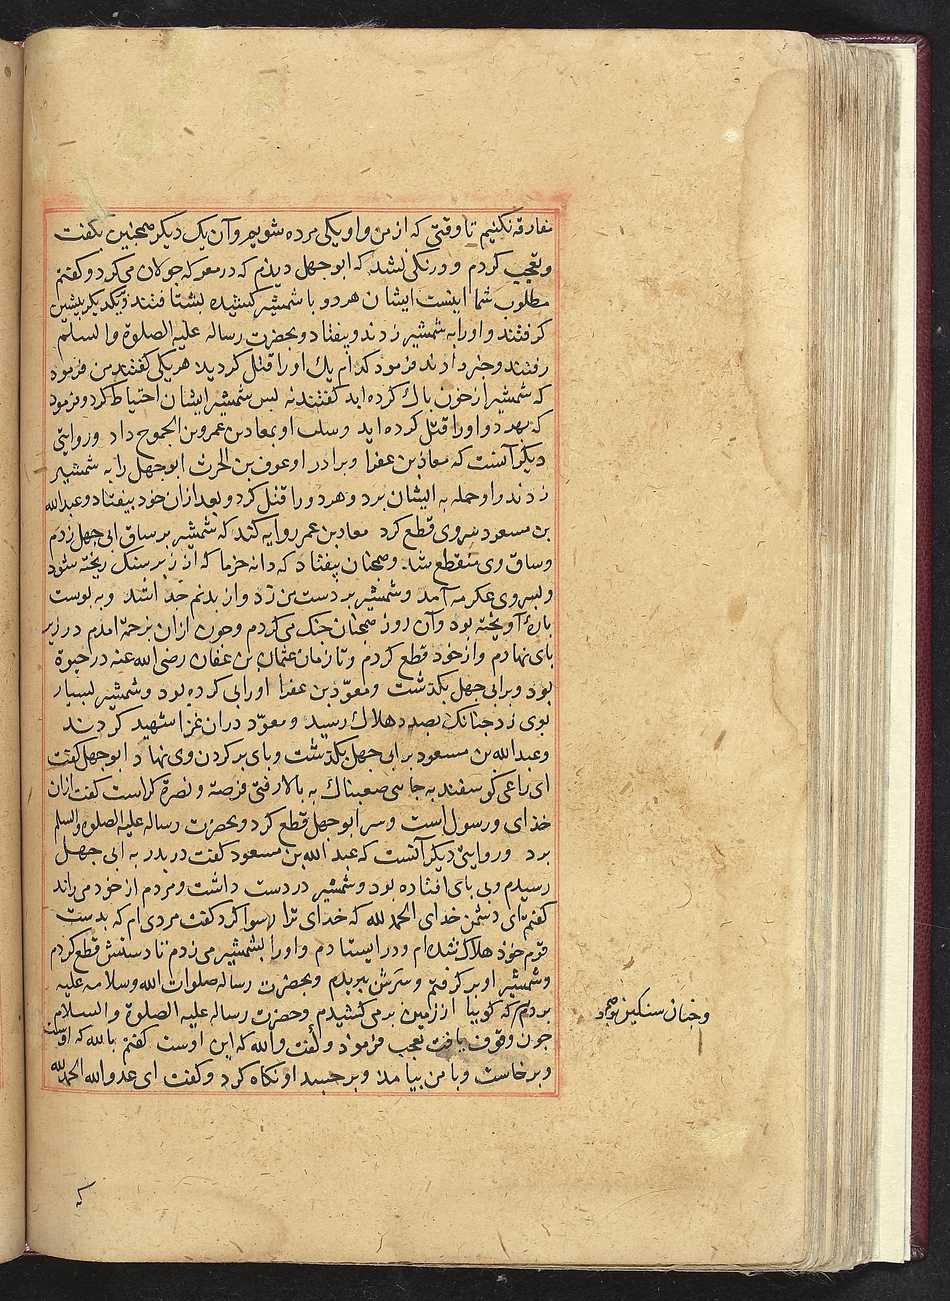 مفارقه نکنیم تا وقتی که از من و او یکی مرده شویم و آن یک دیکر همجنین بکفت
و تعجب کردم و درنکی نشد که ابو جهل دیدم که در معرکه جولان می کرد و کفتم
مطلوب شما اینست ایشان هر دو با شمشیر کشیده بشتافتند
کرفتند و او را به شمشیر زدند و بیفتاد و بحضرت رساله علیه الصلوة والسلم
رفتند و خبر دادند فرمود کدام یک او را قتل کردید هر یکی کفتند من فرمود
که شمشیر از خون باک کرده اید کفتند نه بس شمشیر ایشان احتیاط کرد و فرمود
که هر دو او را قتل کرده اید و سلب او بمعاد بن عمرو بن الجموح داد و روایتی
دیکر آنست که معاذ بن عفرا و برادر او عوف بن الحرث ابو جهل را به شمشیر
زدند و او حمله به ایشان برد و هر دو را قتل کرد و بعد ازان خود بیفتاد و عبدالله
بن مسعود سر وی قطع کرد معاد بن عمر روایه کند که شمشیر بر ساق ابی جهل زدم
و ساق وی منقطع شد و همجنان بیفتاد که دانه خرما که از زیر سنک ریخته شود
و بسر وی عکرمه آمد و شمشیر بر دست من زد و از بدنم جدا شد و به بوست
بارۀ آویخته بود و آن روز همجنان جنک می کردم و جون ازان بزحمة امدم در زیر
بای نهادم و از خود قطع کردم و تا زمان عثمان بن عفان رضی الله عنه در حیوة
بود و بر ابی جهل بکذشت و معوّد بن عفرا او را بی کرده بود و شمشیر بسیار
بوی زد جنانک بصدد هلاک رسید و معوّد دران غزا شهید کردند
و عبدالله بن مسعود بر ابی جهل بکذشت و بای بر کردن وی نهاد ابو جهل کفت
ای راعی کوسفند به جا یی صعبناک به بالا رفتی فرصة و نصرة کراست کفت ازان
خدای و رسول است و سر ابو جهل قطع کرد و بحضرت رساله علیه الصلوة والسلم
برد و روایتی دیکر آنست که عبدالله بن مسعود کفت در بدر به ابی جهل
رسیدم و بی بای افتاده بود و شمشیر در دست داشت و مردم از خود می راند
کفتم ای دشمن خدای الحمد لله که خدای ترا رسوا کرد کفت مردی ام که بدست
قوم خود هلاک شده ام و در ایستادم و او را بشمشیر می زدم تا دستش قطع کردم
و شمشیر او بر کرفتم و سرش ببریدم و بحضرت رساله صلوات الله و سلامه علیه
بردم که کوییا از زمین بر می کشیدم و حضرت رساله علیه الصلوة والسلام
جون وقوف یافت تعجب فرمود و کفت والله که این اوست کفتم بالله که اوست
و برخاست و با من بیامد و بر جسد او نکاه کرد و کفت ای عدو الله الحمد لله
و جنان سنکین بود
که